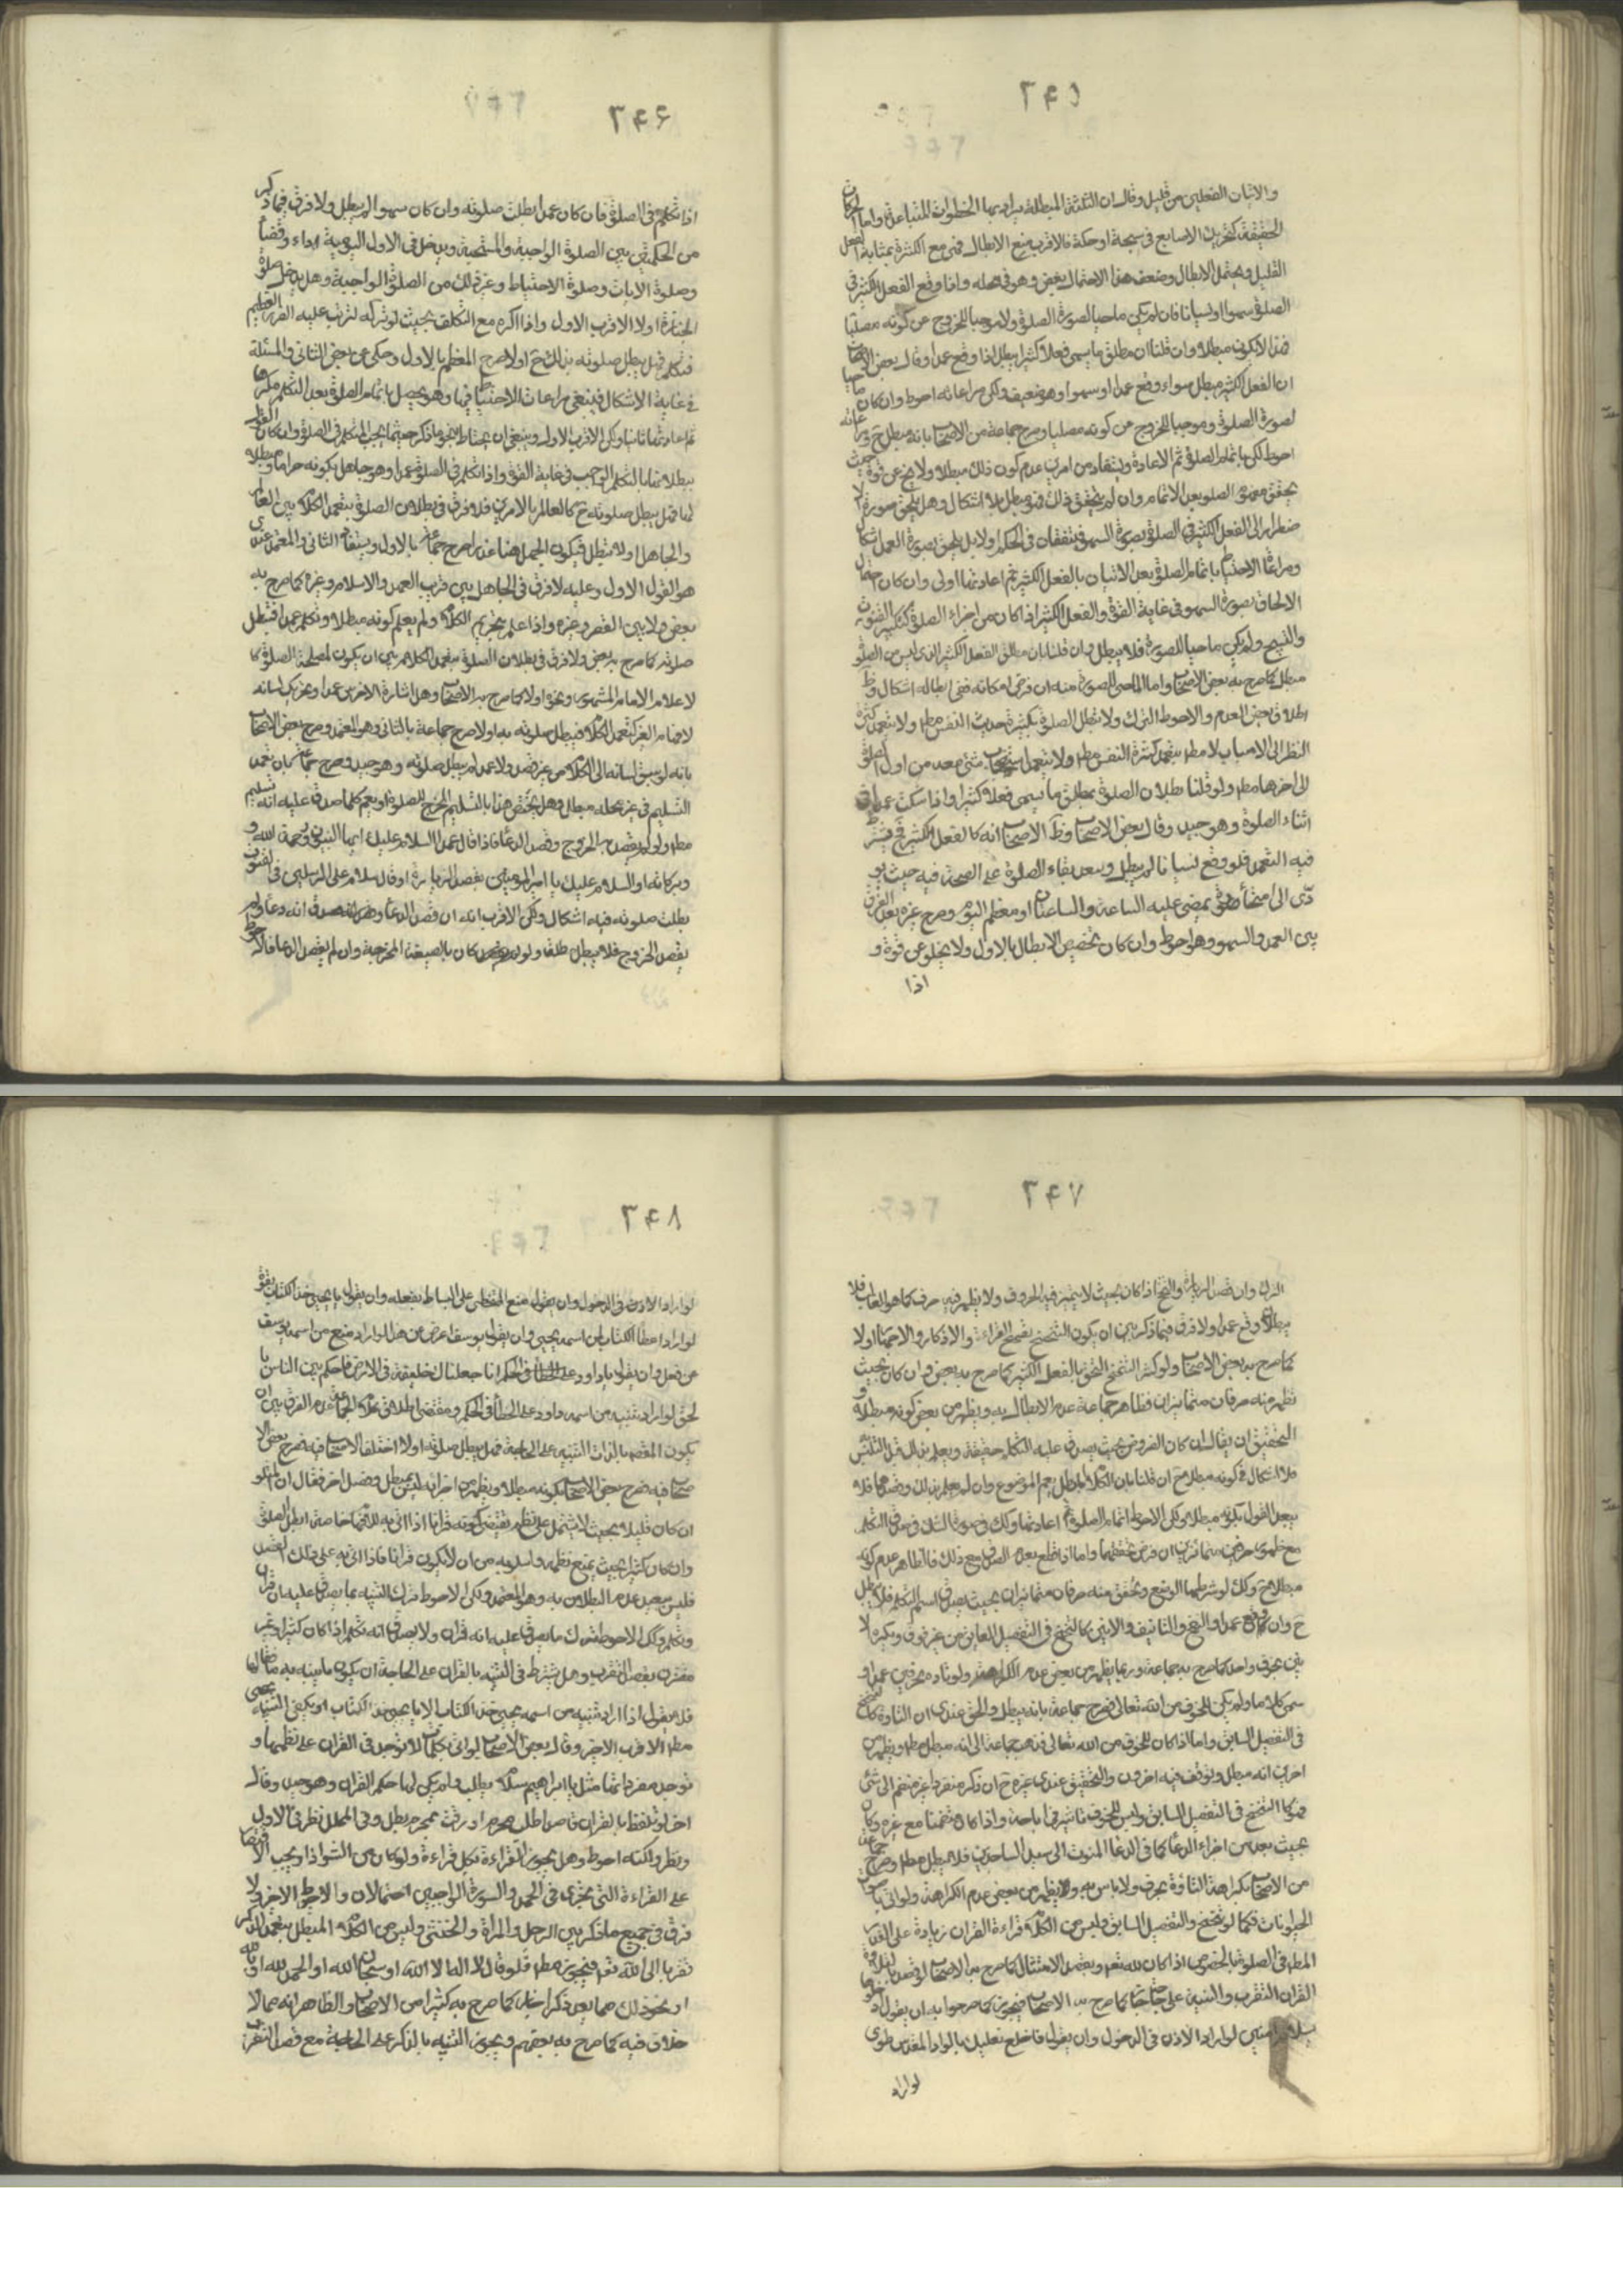 ٢۴۵
والاتيان الفعلين من قليل وقال ان الثلثة المبطلة يراد بها الخطوات المتباعدة واما الحركات
الخفيفة كتحريك الاصابع في سبحة او حكة فالاقرب منع الابطال فهي مع الكثرة بمثابة الفعل
القليل ويحتمل الابطال وضعف هذا الاحتمال بعض وهو في محله واذا وقع الفعل الكثير في
الصلوة سهوا او نسيانا فان لم يكن ماحيا لصورة الصلوة ولا موجبا للخروج عن كونه مصليا
فهذا لا يكون مبطلا وان قلنا ان مطلق ما يسمى فعلا كثيرا يبطل اذا وقع عمدا وقال بعض الاصحاب
ان الفعل الكثير مبطل سواء وقع عمدا او سهوا وهو ضعيف ولكن مراعاته احوط وان كان ماحيا
لصورة الصلوة وموجبا للخروج عن كونه مصليا وصرح جماعة من الاصحاب بانه مبطل ح ومراعاته
احوط لكن باتمام الصلوة ثم الاعادة ويستفاد من اخرين عدم كون ذلك مبطلا ولا يخ عن قوة حيث
يتحقق مفهوم الصلو بعد الاتمام وان لم يتحقق ذلك فهو مبطل بلا اشكال وهل يلحق صورة الا
ضطرار الى الفعل الكثير في الصلوة بصورة السهو فيتفقان في الحكم اولا بل يلحق بصورة العمد اشكال
ومراعاة الاحتياط باتمام الصلوة بعد الاتيان بالفعل الكثير ثم اعادتها اولى وان كان احتمال
الالحاق بصورة السهو في غاية القوة والفعل الكثير اذا كان من اجزاء الصلوة كتكثير القنوت
والتسبيح ولم يكن ماحيا للصورة فلا يبطل وان قلنا بان مطلق الفعل الكثير الذى ليس من الصلوة
مبطل كما صرح به بعض الاصحاب واما الماحى للصورة منه ان فرض امكانه ففى ابطاله اشكال وظ
اطلاق بعض العدم والاحوط الترك ولا تبطل الصلوة بكثرة حديث النفس مط ولا بتعمد كثرة
النظر الى الاسباب لا مط بتعمد كثرة النفس مط ولا بتعمد استصحاب شئ معه من اول الصلوة
الى اخرها مط ولو قلنا بطلان الصلوة بمطلق ما يسمى فعلا كثيرا واذا سكت عمدا في
اثناء الصلوة وهو جيد وقال بعض الاصحاب وظ الاصحاب انه كالفعل الكثير فح يشترط
فيه التعمد فلو وقع نسيانا لم يبطل ويبعد بقاء الصلوة على الصحة فيه حيث يو
دى الى امحاء صورة يمضى عليه الساعة والساعتان او معظم اليوم وصرح غيره بعدم الفرق
بين العمد والسهو وهو احوط وان كان تخصيص الابطال بالاول ولا يخلو عن قوة و
اذا
٢۴۶
اذا تكلم في الصلوة فان كان عمدا بطلت صلوته وان كان سهوا لم يبطل ولا فرق فيما ذكر
من الحكمين بين الصلوة الواجبة والمستحبة ويدخل في الاول اليومية اداء وقضاء
وصلوة الايات وصلوة الاحتياط وغير ذلك من الصلوة الواجبة وهل يدخل صلوة
الجنازة اولا الاقرب الاول واذا اكره مع التكلم بحيث لو تركه لترتب عليه الضرر العظيم
فتكلم فهل يبطل صلوته بذلك ح اولا صرح المعظم بالاول وحكى عن بعض الثاني والمسئلة
في غاية الاشكال فينبغى مراعات الاحتياط فيها وهو يحصل باتمام الصلوة بعد التكلم مكرها
ثم اعادتها ثانيا ولكن الاقرب الاول وينبغى ان يحتاط بنحو ما ذكر حيثما يجب التكلم في الصلوة وان كان القول
ببطلانها بالتكلم الواجب في غاية القوة واذا تكلم في الصلوة عمدا وهو جاهل بكونه حراما ومبطلا
لها فهل يبطل صلوته ح كالعالم بالامرين فلا فرق في بطلان الصلوة بتعمد الكلام بين العالم
والجاهل اولا تبطل فيكون الجهل هنا عذرا صرح جماعة بالاول ويستفاد الثاني والمعتمد عندى
هو القول الاول وعليه لا فرق في الجاهل بين قريب العهد والاسلام وغيره كما صرح به
بعض ولا بين القصر وغيره واذا علم بتحريم الكلام ولم يعلم كونه مبطلا وتكلم عمدا فتبطل
صلوته كما صرح به بعض ولا فرق في بطلان الصلوة بتعمد الكلام بين ان يكون لمصلحة الصلوة كا
لاعلام الامام المشهور ونحوه اولا كما صرح به الاصحاب وهل اشارة الاخرس عمدا وتحريك لسانه
لافهام الغير كتعمد الكلام فيبطل صلوته به اولا صرح جماعة بالثانى وهو المعتمد وصرح بعض الاصحاب
بانه لو سبق لسانه الى الكلام من غير قصد ولا عمد لم يبطل صلوته وهو جيد وصرح جماعة بان تعمد
التسليم في غير محله مبطل وهل يختص هذا بالتسليم المخرج للصلوة او يعم كلما صدق عليه انه تسليم
مط ولو لم يقصد به الخروج وقصد الدعاء فاذا قال عمدا السلام عليك ايها النبى ورحمة الله و
وبركاته او السلام عليك يا امير المؤمنين بقصد الزيارة او قال سلام على المرسلين في القنوت
بطلت صلوته فيه اشكال ولكن الاقرب انه ان قصد الدعاء وصدق انه دعاء ولم
يقصد الخروج فلا يبطل مطلقا ولو كان بالصيغة المخرجة وان لم يقصد الدعا فالاحوط
٢۴٧
الترك وان قصد الزيارة والنخ اذا كان بحيث لا يتميز فيه الحروف ولا يظهر فيه حرف كما هو الغالب فلا
يبطل وان وقع عمدا ولا فرق فيما ذكر بين ان يكون التنحنح بفصيح القراءة والاذكار والاحتمال اولا
كما صرح به بعض الاصحاب ولو كثر التنحنح التحق بالفعل الكثير كما صرح به بعض وان كان بحيث
تظهر منه حرفان متمايزان فظاهر جماعة عدم الابطال به ويظهر من بعض كونه مبطلا و
التحقيق ان يقال ان كان الفرض بحيث يصدق عليه التكلم حقيقة ويعلم بذلك قبل التلبس
فلا اشكال في كونه مبطلا ح ان قلنا بان الكلام المبطل يعم الموضوع وان لم يعلم بذلك وقصدهما فلا
يبعد القول بكونه مبطلا ولكن الاحوط اتمام الصلوة ثم اعادتها وكك في صورة الشك في صدق التكلم
مع ظهور حرفين متمايزين ان فرض تحققها واما اذا قطع بعدم الصدق مع ذلك فالظاهر عدم كونه
مبطلا ح وكك لو شرطنا الوضع وتحقق منه حرفان متمايزان بحيث يصدق اسم التكلم فلا يبطل
ح وان وقع عمدا والنفخ والتأفيف والانين كالتنحنح في التفصيل السابق من غير فرق ويكره الا
نين بحرف واحد كما صرح به جماعة وربما يظهر من بعض عدم الكراهة ولو تأوه بحرفين عمدا و
سمى كلاما ولم يكن للخوف من الله تعالى فصرح جماعة بانه يبطل والحق عندى ان التأوه كالتنحنح
في التفصيل السابق واما اذا كان للخوف من الله تعالى فذهب جماعة الى انه مبطل مط ويظهر من
اخرين انه مبطل وتوقف فيه اخرون والتحقيق عندى غيره ح ان ذكره منفردا غير منضم الى شئ
فهو كالتنحنح في التفصيل السابق وليس للخوف تاثير في اباحته واذا كان منضما مع غيره وكان
بحيث يعد من اجزاء الدعا كما في الدعا المنسوب الى سيد الساجدين فلا يبطل مط وصرح جماعة
من الاصحاب بكراهة التأوه بحرف ولا باس به ويظهر من بعض عدم الكراهة ولو اتى باصوات
الحيوانات فكما لو تنحنح والتفصيل السابق وليس من الكلام قراءة القران زيادة على القدر
المط في الصلوة بالخصوص اذا كان لله تعالى وبقصد الامتثال كما صرح به الاصحاب لو قصد بتلاوة
القران التقرب والتنبيه على حاجة كما صرح به الاصحاب فيجوز كما صرحوا به ان يقول ادخلوها
بسلام امنين لو اراد الاذن في الدخول وان يقول فاخلع نعليك بالواد المقدس طوى
لو اراد
٢۴٨
لو اراد الاذن في الدخول وان يقول منع المتخطى على البساط بنعله وان يقول يا يحيى خذ الكتاب بقوة
لو اراد اعطاء الكتاب لمن اسمه يحيى وان يقول يوسف اعرض عن هذا لو اراد منع من اسمه يوسف
عن فعل وان يقول يا داود انا جعلناك خليفة في الارض فاحكم بين الناس با
لحق لو اراد تنبيه من اسمه داود على الخطأ في الحكم ومقتضى اطلاق كلام الجماعة عدم الفرق بين ان
يكون المقصود بالذات التنبيه على الحاجة فهل يبطل صلوته اولا اختلف الاصحاب فيه فصرح بعض الا
صحاب فيه فصرح بعض الاصحاب بكونه مبطلا ويظهر من اخر انه ليس بمبطل وفصل اخر فقال ان المتلو
ان كان قليلا بحيث لا يشتمل على نظم يقتضى كونه قرانا اذا اتى به للافهام خاصة ابطل الصلوة
وان كان كثيرا بحيث يمنع نظمه واسلوبه من ان لا يكون قرانا فاذا اتى به على ذلك القصد
فليس ببعيد عدم البطلان به وهو المعتمد ولكن الاحوط ترك التنبيه بما يصدق عليه انه قران
وتكلم وكك الاحوط ترك ما يصدق عليه انه قران ولا يصدق انه تكلم اذا كان كثيرا وغير
مقترن بقصد التقرب وهل يشترط في التنبيه بالقران على الحاجة ان يكون ما ينبه به مطابقا لها
فلا يقول اذا اراد تنبيه من اسمه يحيى خذ الكتاب الا يا يحيى خذ الكتاب او يكفى التنبيه
مط الاقرب الاخير وقال بعض الاصحاب لو اتى بكلمات لا توجد في القران على نظمها و
توجد مفرداتها مثل يا ابراهيم سلام يبطل ولم يكن لها حكم القران وهو جيد وقال
اخر لو تلفظ بالقران قاصدا يبطل وفي المحلل نظر في الاول
ونظر ولكنه احوط وهل يجوز القراءة بكل قراءة ولو كان من الشواذ او يجب الاقتصار
على القراءة التى يجزى في الحمد والسورة الواجبين احتمالان والاحوط الاخير ولا
فرق في جميع ما ذكر بين الرجل والمرأة والخنثى وليس من الكلام المبطل بتعمد الذكر
تقربا الى الله تعالى فيجوز مط فلو قال لا اله الا الله او سبحان الله او الحمد لله او
او نحو ذلك مما يعد ذكرا جاز كما صرح به كثير من الاصحاب والظاهر انه مما لا
خلاف فيه كما صرح به بعضهم ويجوز التنبيه بالذكر على الحاجة مع قصد التقرب